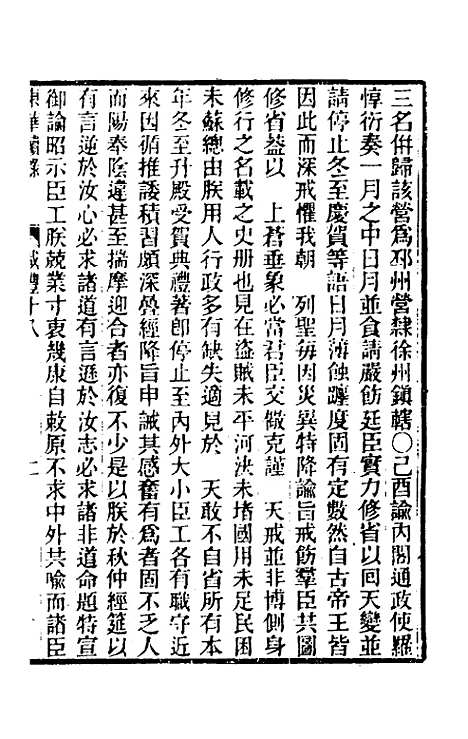 三名倂歸該營爲邳州營隸徐州鎭轄〇己酉諭內閣通政使羅
惇衍奏一月之中日月並食請嚴飭廷臣實力修省以囘天變並
請停止冬至慶賀等語日月薄蝕躔度固有定數然自古帝王皆
因此而深戒懼我朝 列聖每因災異特降諭旨戒飭羣臣共圖
修省葢以 上蒼垂象必當君臣交儆克謹 天戒並非博側身
修行之名載之史册也見在盜賊未平河決未堵國用未足民困
未蘇總由朕用人行政多有缺失適見於 天敢不自省所有本
年冬至升殿受賀典禮著卽停止至內外大小臣工各有職守近
來因循推諉積習頗深疊經降旨申誡其感奮有爲者固不乏人
而陽奉陰違甚至揣摩迎合者亦復不少是以朕於秋仲經筵以
有言逆於汝心必求諸道有言遜於汝志必求諸非道命題特宣
御論昭示臣工朕兢業寸衷幾康自敕原不求中外共喩而諸臣
東華續錄 咸豐十八